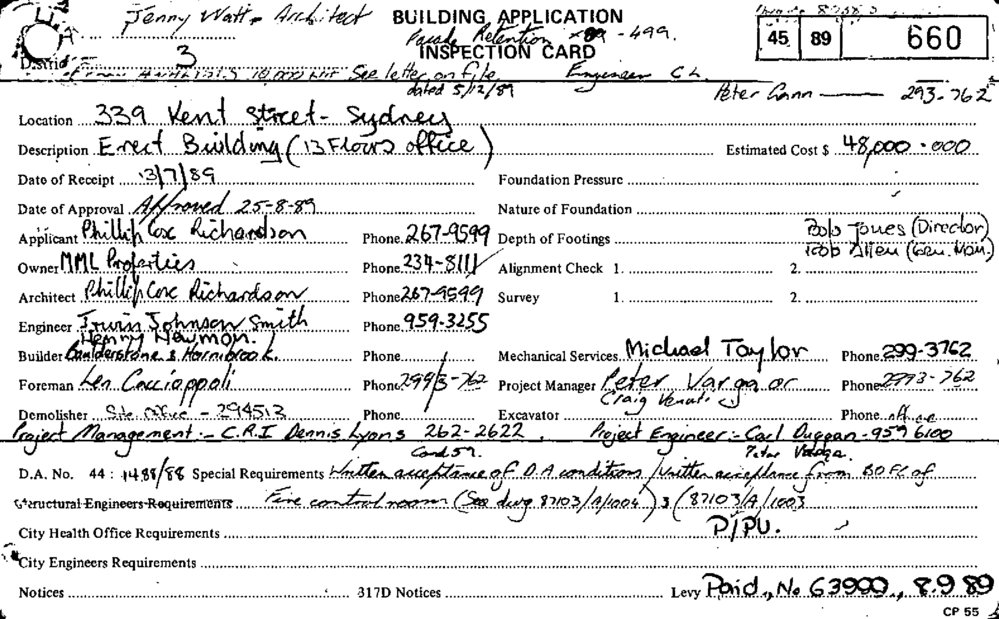 Jenny Watt - Architect BUILDING APPLICATION
Facade Retention - 499. INSPECTION CARD 45 89 660
District 3
See letter on file Engineer
dated 5/12/89 Peter Cann 293-762
Location 339 Kent Street - Sydney
Description Erect Building (13 Floors office) Estimated Cost $ 48,000.000
Date of Receipt 13/7/89 Foundation Pressure
Date of Approval Approved 25-8-89 Nature of Foundation
Applicant Phillip Cox Richardson Phone. 267-9599 Depth of Footings Bob Jones (Director)
Rob Allen (Gen. Man.)
Owner MML Properties Phone. 234-8111 Alignment Check 1. 2.
Architect Phillip Cox Richardson Phone 267-9599 Survey 1. 2.
Engineer Irwin Johnson Smith Phone. 959-3255
Henny Newmon.
Builder Baulderstone & Hornibrook. Phone Mechanical Services Michael Taylor Phone 299-3762
Foreman Len Caccioppoli Phone 2993-762 Project Manager Peter Varga or Phone 2993-762
Craig
Demolisher Site Office - 294513 Phone Excavator Phone
Project Management :- C.R.I Dennis Lyons 262-2622. Project Engineer :- Carl Duggan - 959 6100
Cond 57. Peter
D.A. No. 44 : 1488/88 Special Requirements Written acceptance of D.A conditions / Written acceptance from BOFC of
Structural Engineers Requirements Fire control room (See dwg 87103/A/1004) & (87103/A/1003
City Health Office Requirements P/PU.
City Engineers Requirements
Notices 317D Notices Levy Paid, No 63900, 8.9 89
CP 55